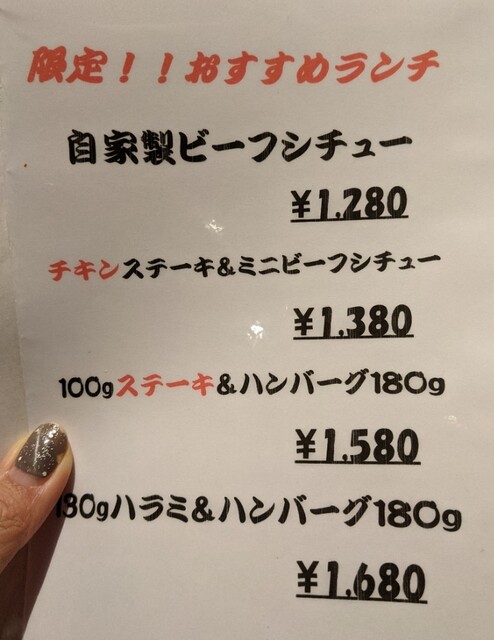 限定！！おすすめランチ
自家製ビーフシチュー
¥1.280
チキンステーキ&ミニビーフシチュー
¥1.380
100gステーキ&ハンバーグ180g
¥1.580
ハラミ&ハンバーグ180g
¥1.680